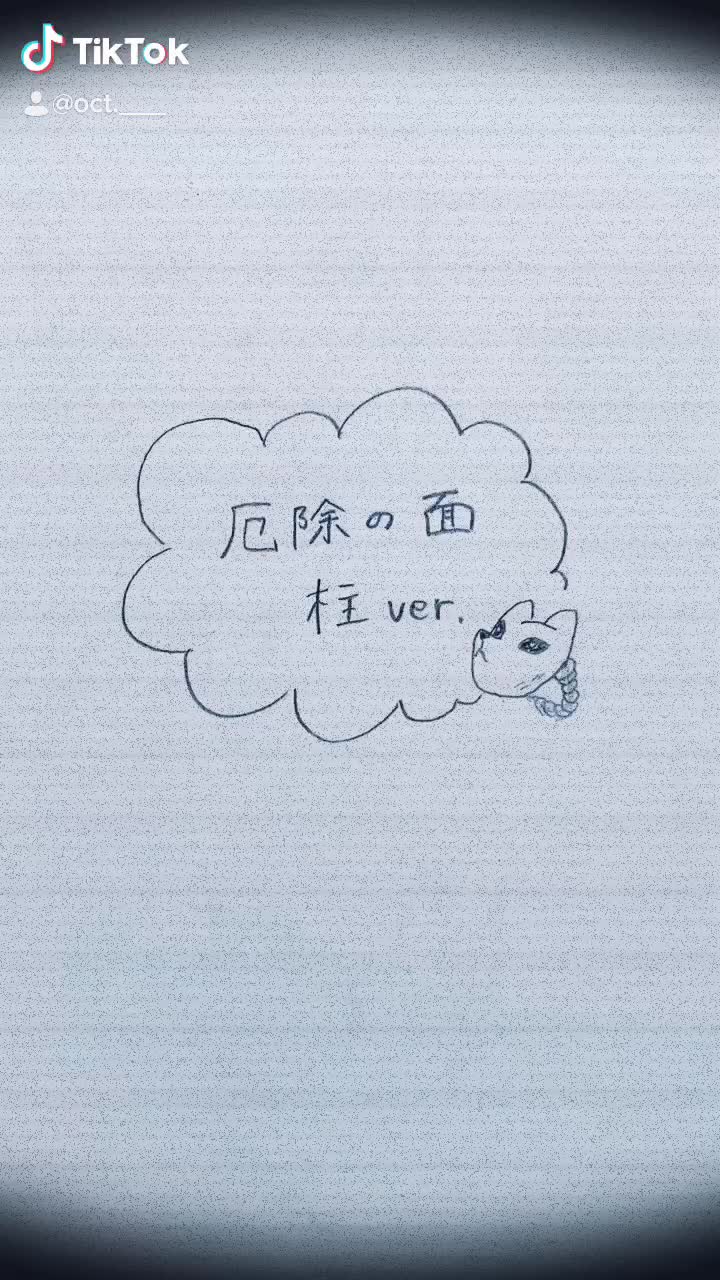 TikTok
@oct.____
厄除の面
柱 ver.